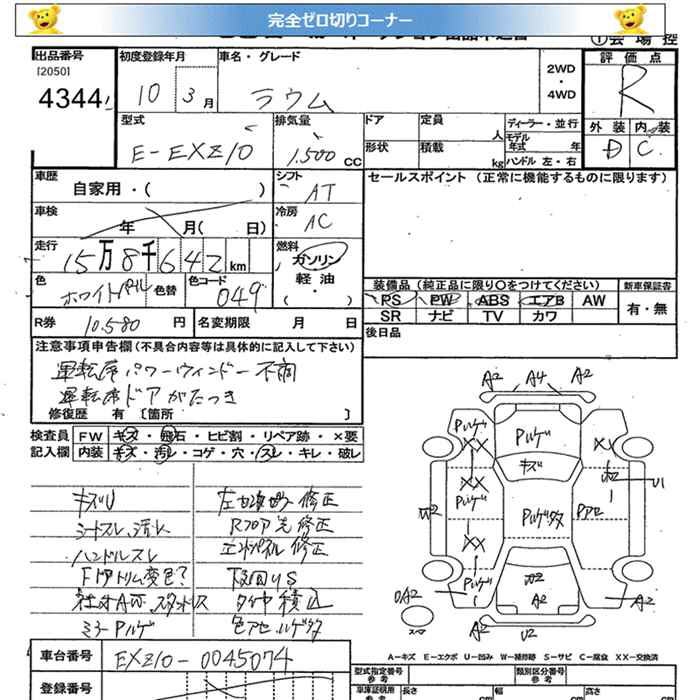 完全ゼロ切りコーナー
出品番号
[2050]
4344
初度登録年月
10 3月
車名・グレード
ラウム
2WD
・
4WD
評価点
R
外装 内装
D C
型式
E-EXZ10
排気量
1.500 CC
ドア
定員
人
ディーラー・並行
形状
積載
kg
モデル
年式 年
ハンドル 左・右
車歴
自家用・( )
シフト
AT
セールスポイント (正常に機能するものに限ります)
車検
年 月( 日)
冷房
AC
走行
15万8千642km
燃料
ガソリン
軽油
・
( )
色
ホワイトパール
色替
色コード
049
装備品 (純正品に限り○をつけてください)
新車保証書
PS PW ABS エアB AW
SR ナビ TV カワ
有・無
R券 10.580 円
名変期限 月 日
後日品
注意事項申告欄 (不具合内容等は具体的に記入して下さい)
運転席パワーウィンドー不調
運転席ドアがたつき
修復歴 有 [箇所 ]
検査員
記入欄
FW キズ・飛石・ヒビ割・リペア跡・×要
内装 キズ・汚レ・コゲ・穴・スレ・キレ・破レ
キズU
シートスレ、汚レ
ハンドルスレ
ミラーハルゲ
修正
Rフロア 先 修正
エンドパネル 修正
下回りS
タイヤ積込
色アセ、ハルゲタ
A2 A4 A2
ハルゲ
XX
ハルゲ
キズ
XX
ハルゲ
W2
U1
XX
ハルゲ
A2
U2
A2
A2
スペア
A=キズ E=エクボ U=凹み W=補修跡 S=サビ C=腐食 XX=交換済
車台番号
EXZ10-0045074
登録番号
型式指定番号
参考
類別区分番号
参考
車庫証明用
参考
長さ
cm
幅
高さ